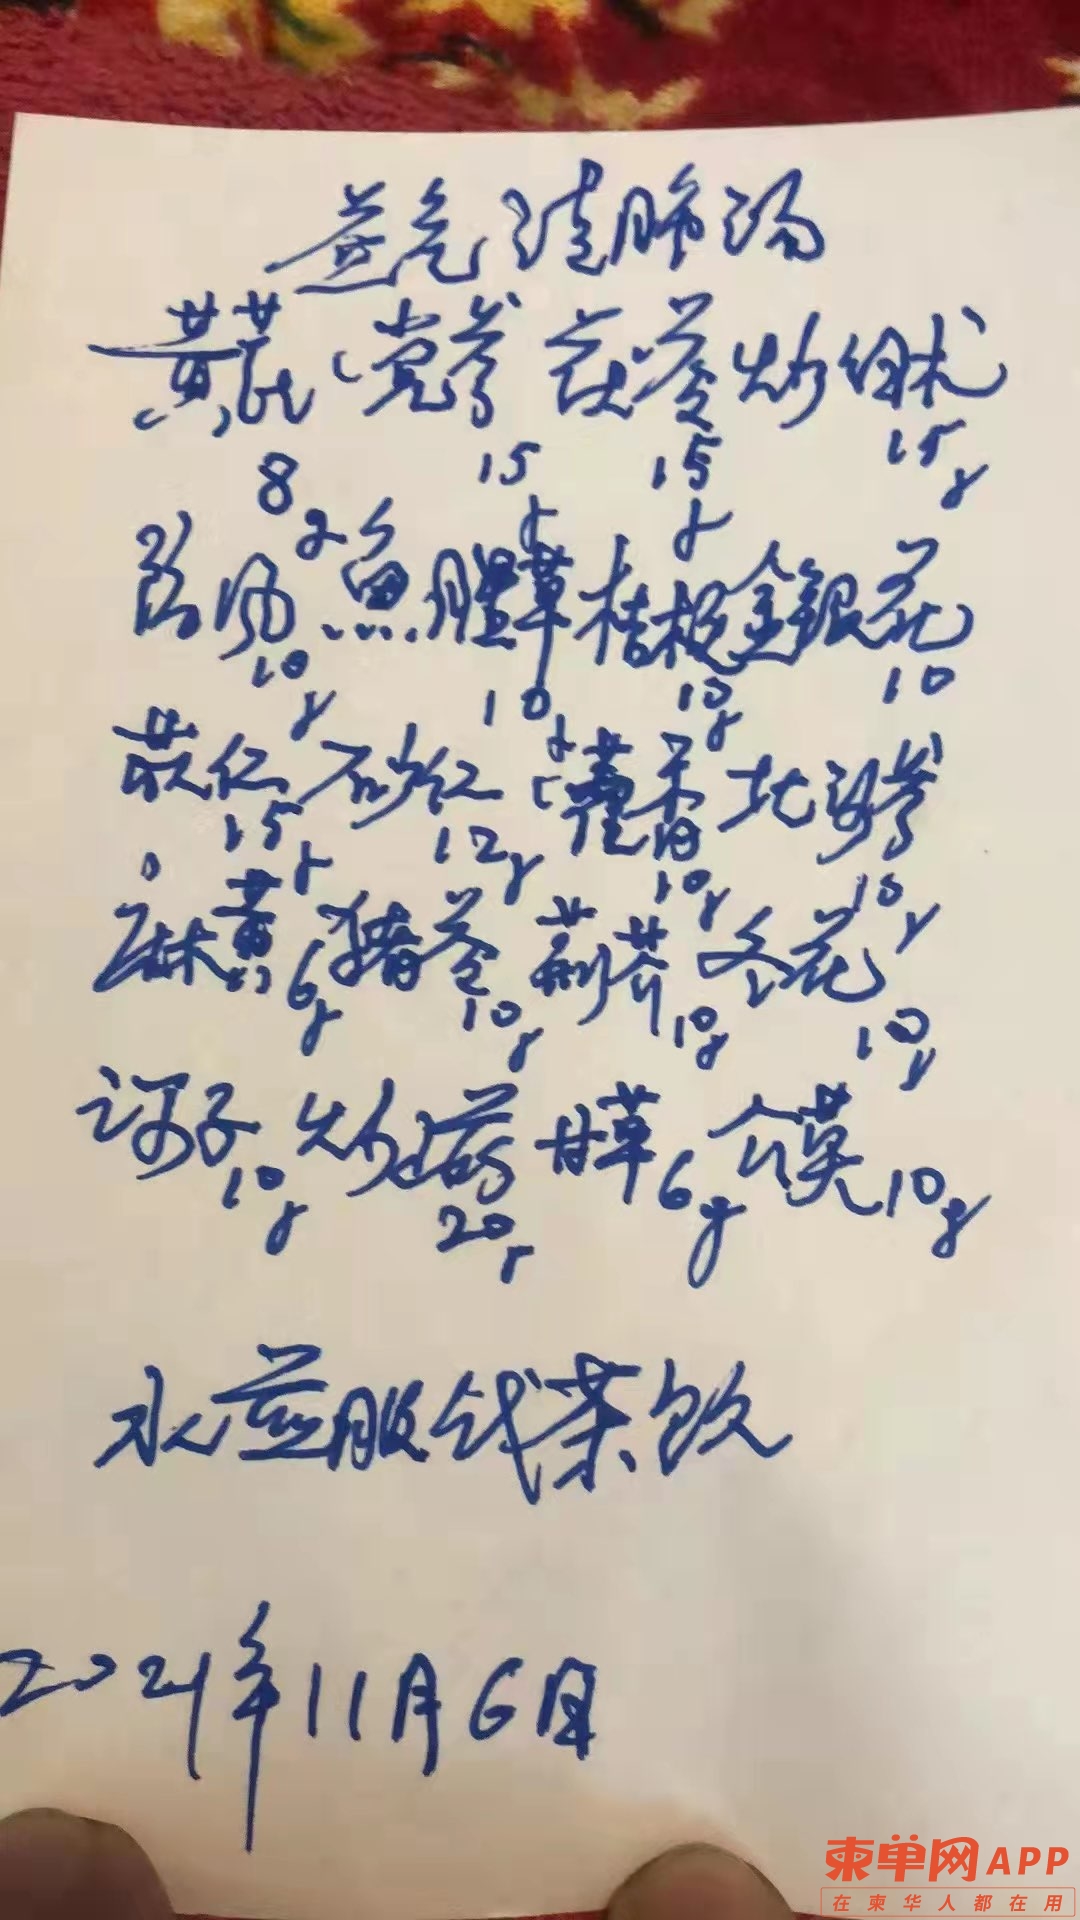 益气清肺汤
黄芪 党参 茯苓 炒白术
8g 15g 15g 15g
防风 魚腥草 桔梗 金銀花
10g 10g 10g 10
苡仁 砂仁 藿香 北沙参
15g 12g 10g 10g
麻黄6g 猪苓 荆芥 冬花
10g 10g 10g
诃子 炒 甘草6g 10g
10g 20g
永益服 茶饮
2021年11月6日
柬单网APP
在柬华人都在用